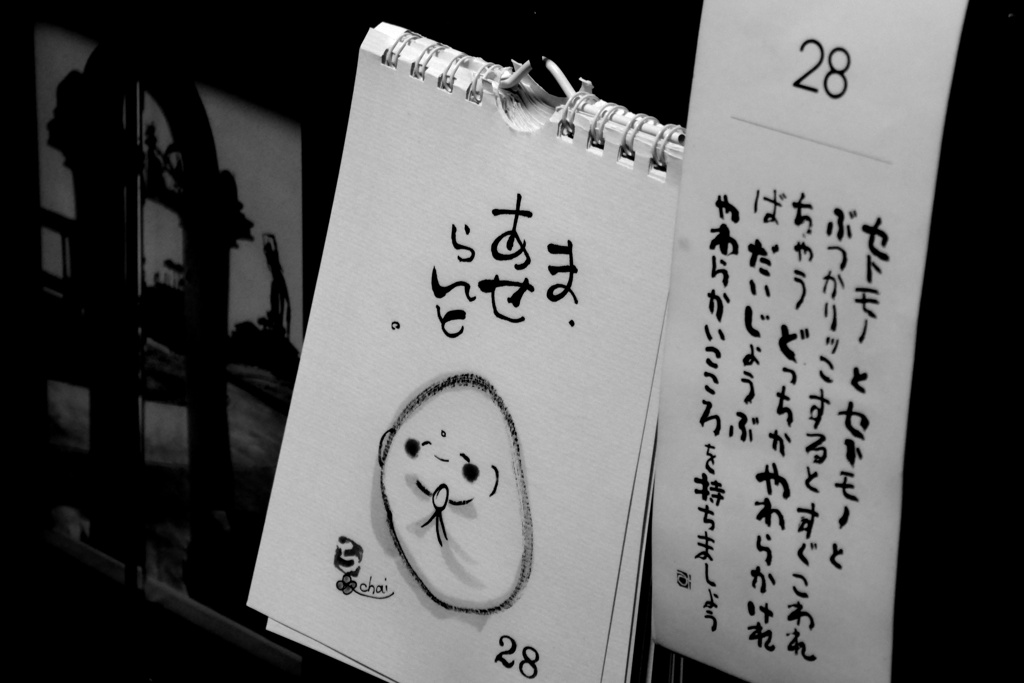 ま、
あせ
らんと。
chai
28
28
セトモノとセトモノと
ぶつかりッこするとすぐこわれ
ちゃう どっちかやわらかけれ
ば だいじょうぶ
やわらかいこころを持ちましょう